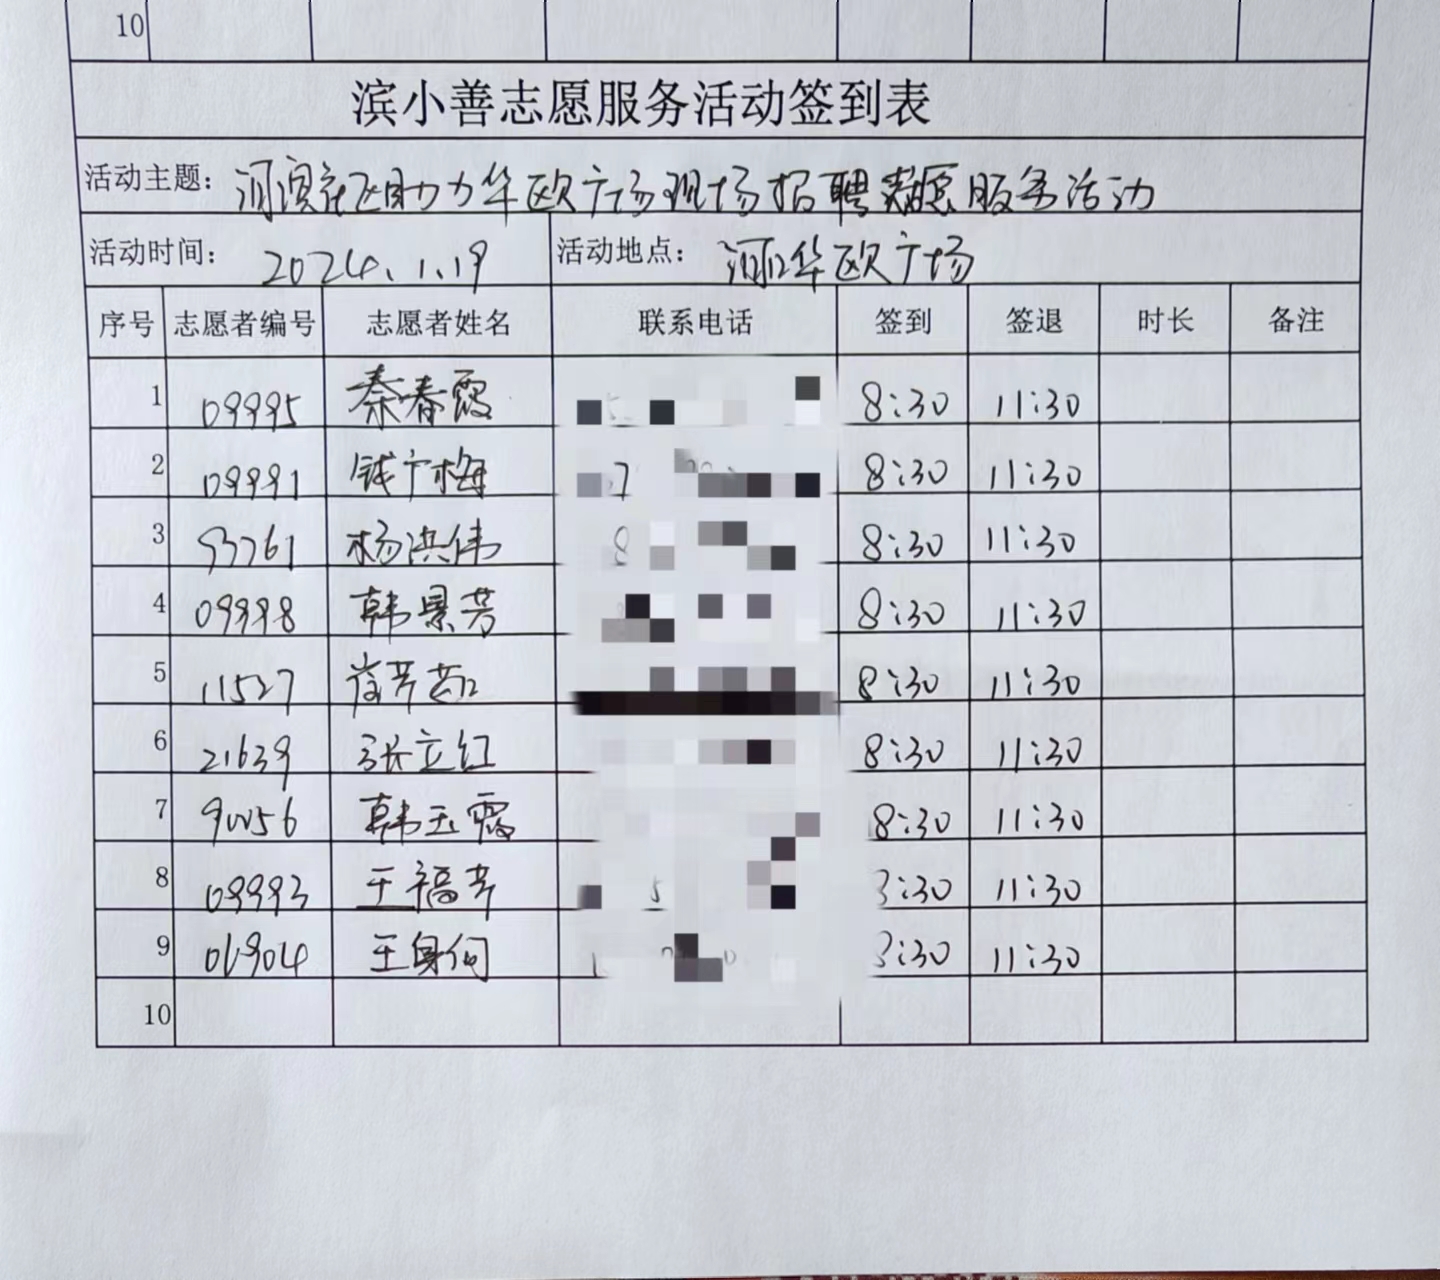 10
滨小善志愿服务活动签到表
活动主题: 河滨社区助力华欧广场现场招聘志愿服务活动
活动时间: 2024.1.19 活动地点: 河口华欧广场
序号 志愿者编号 志愿者姓名 联系电话 签到 签退 时长 备注
1 09995 秦春霞 8:30 11:30
2 09991 钱广梅 8:30 11:30
3 93761 杨洪伟 8:30 11:30
4 09998 韩景芳 8:30 11:30
5 11527 8:30 11:30
6 21639 张立红 8:30 11:30
7 90056 韩玉霞 8:30 11:30
8 09993 王福芹 :30 11:30
9 王身向 :30 11:30
10